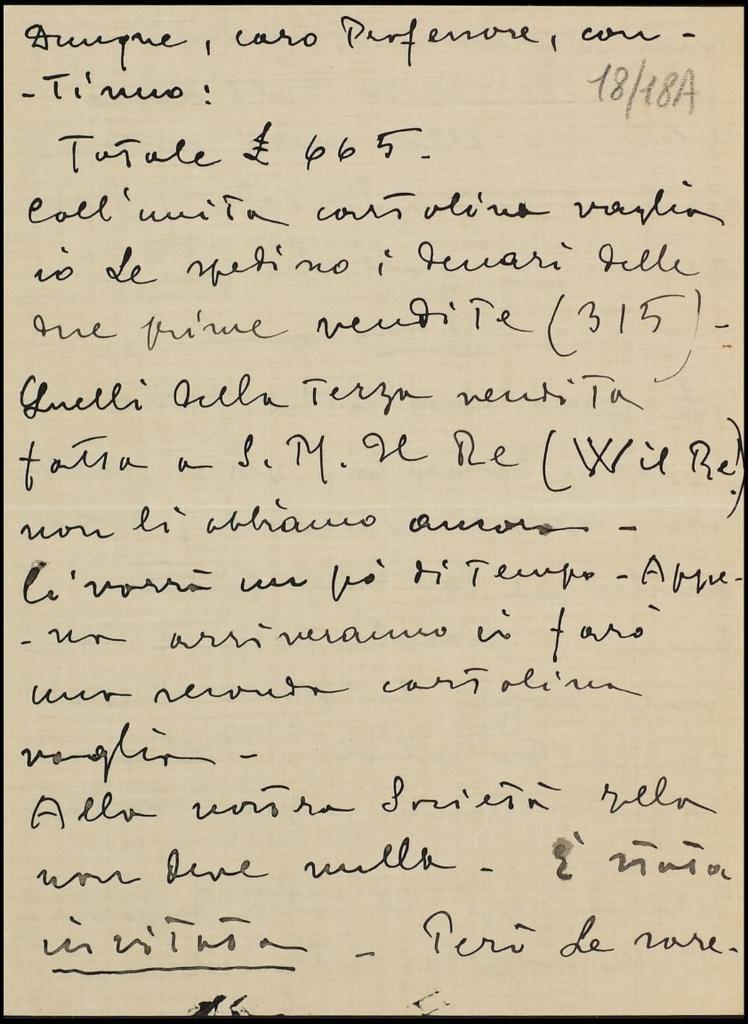 Dunque, caro Professore, con-
-tinuo:
18/18A
Totale £ 665.
Coll'unita cartolina vaglia
io Le spedisco i denari delle
due prime vendite (315) -
Quelli della terza vendita
fatta a S. M. Il Re (W il Re!)
non li abbiamo ancora -
Ci vorrà un pò di tempo - Appe-
-na arriveranno io farò
una seconda cartolina
vaglia -
Alla nostra Società Ella
non deve nulla - È stata
invitata - Però Le sare-